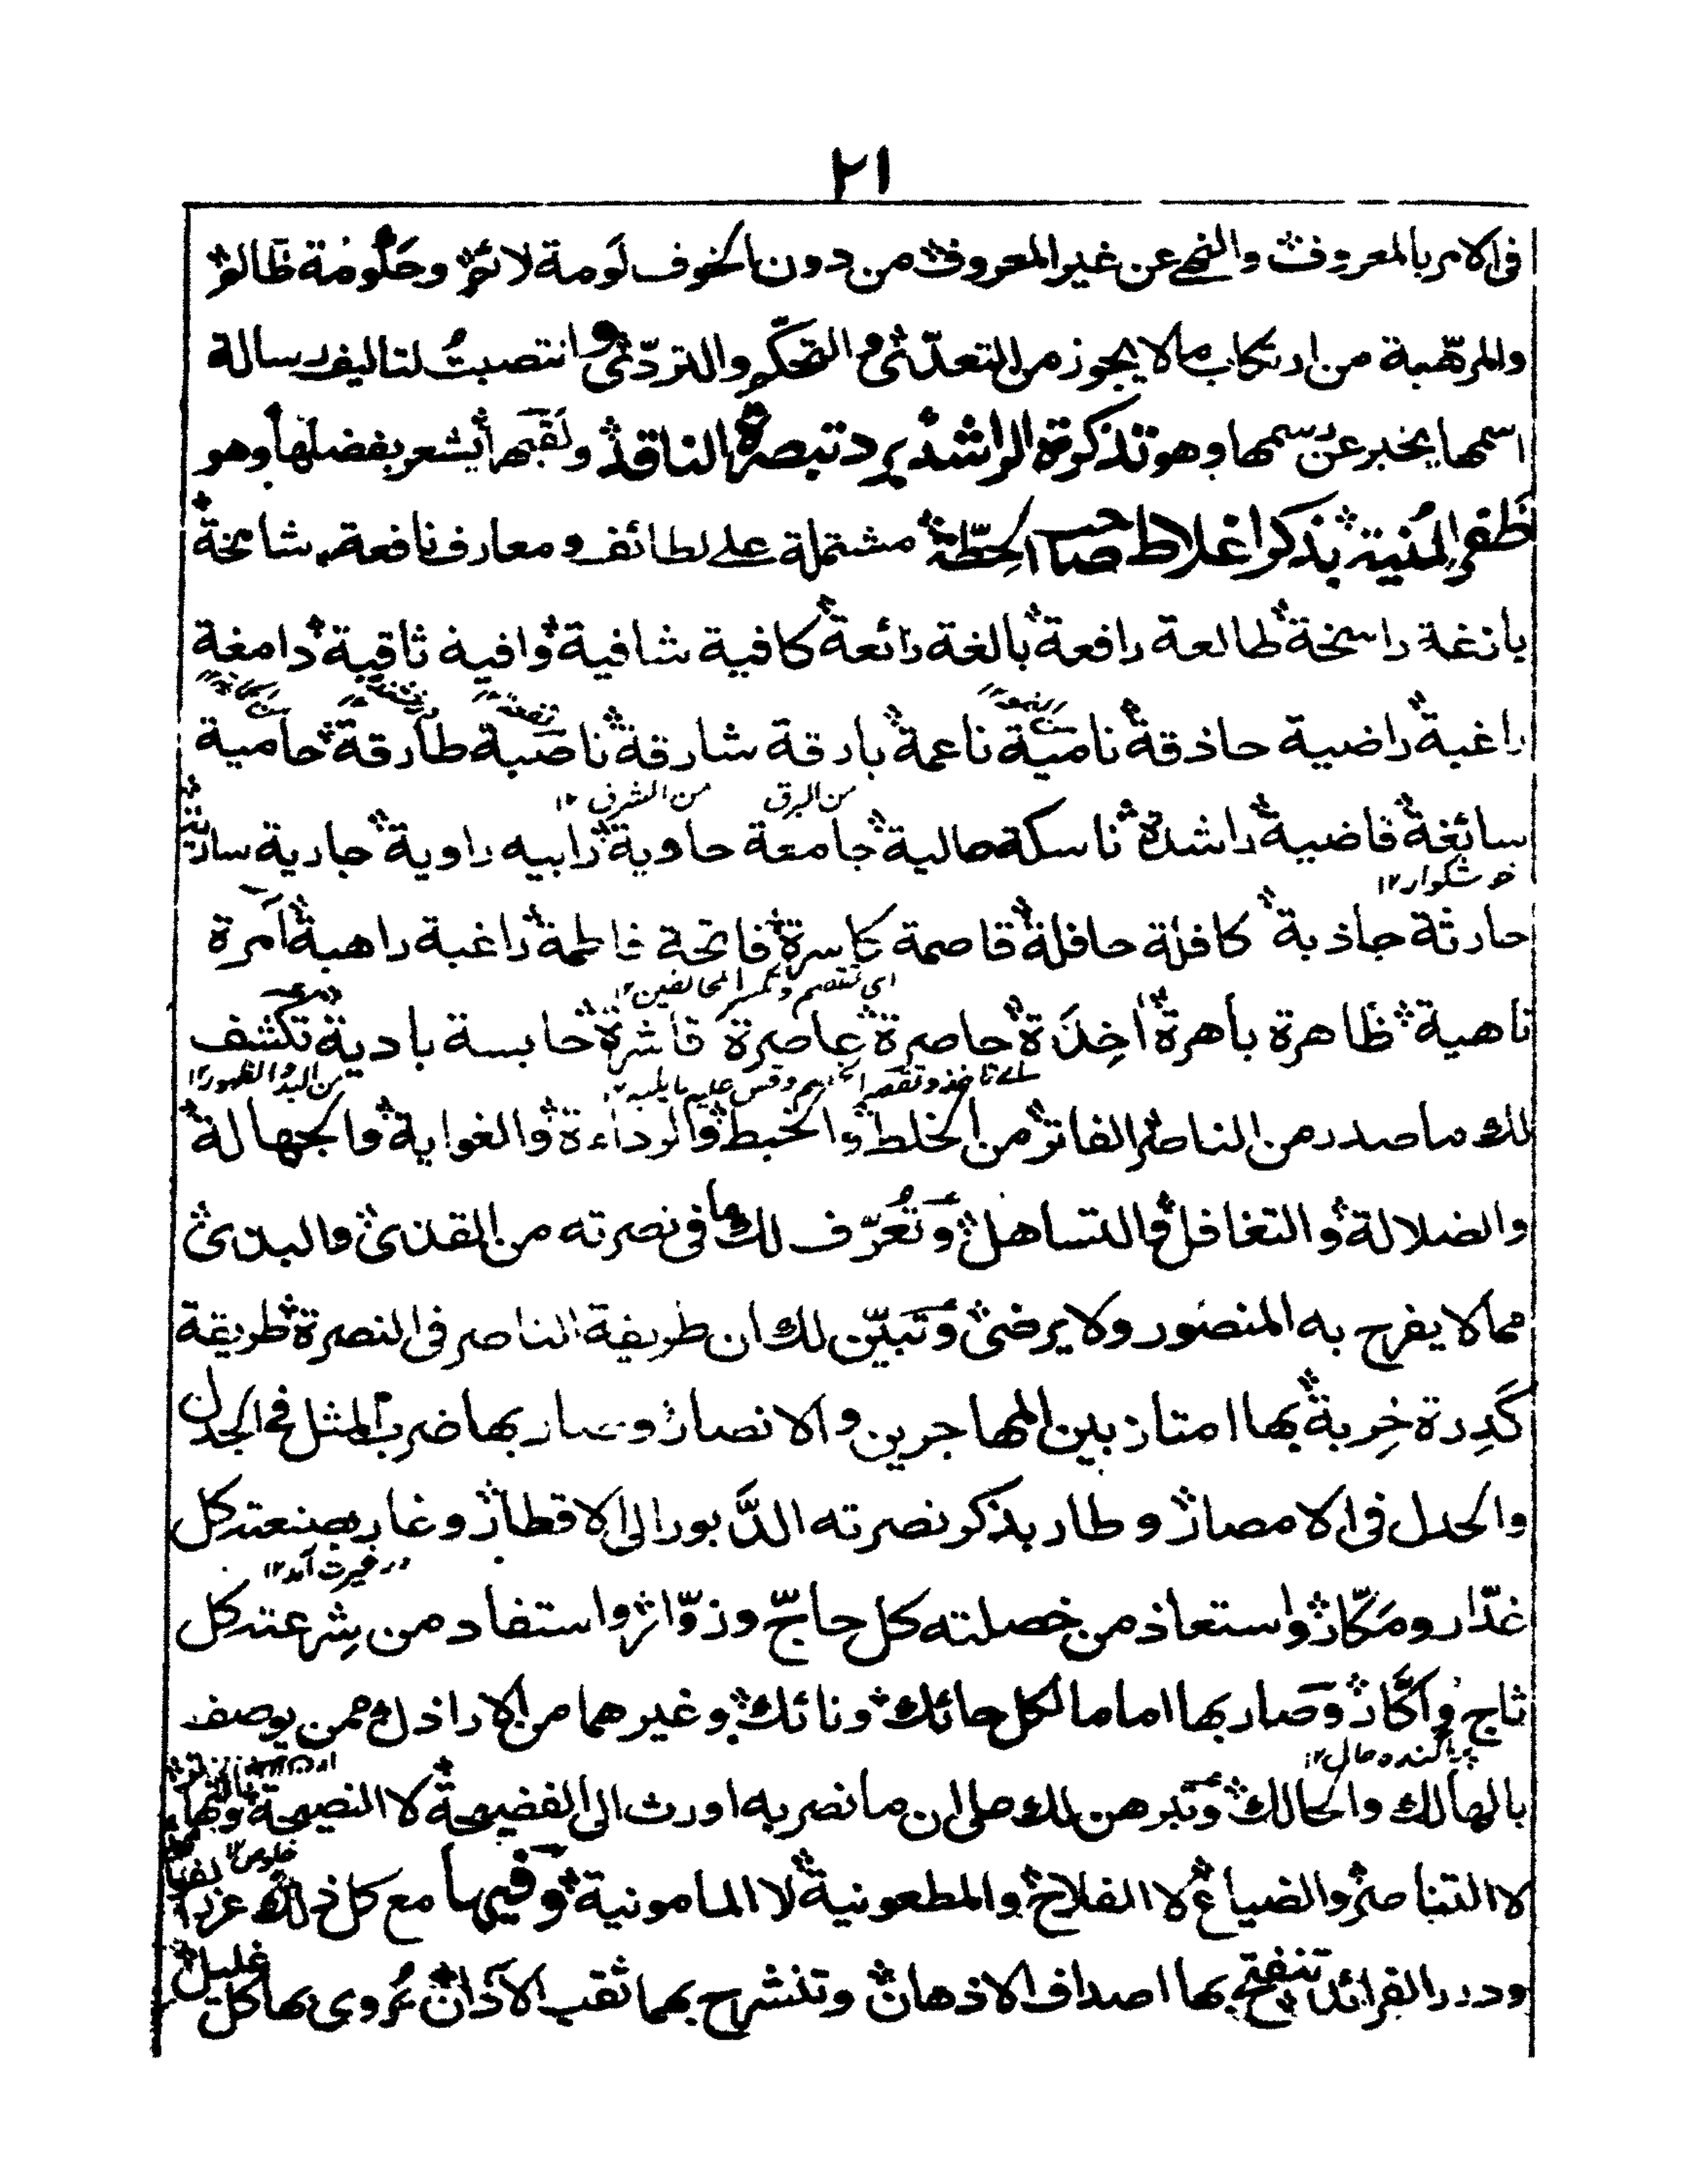 ٢١
فى الامر بالمعروف والنهى عن غير المعروف من دون الخوف لَومة لائم وحَلُومُة ظالم
والمرهّبة من ارتكاب ما لا يجوز من التعدّى والتحكّم والتردّى وانتصبتُ لتاليف رسالة
اسمها يخبر عن رسمها وهو تذكرة الراشد برد تبصرة الناقد ولقبها يشعر بفضلها وهو
ظفر المُنية بذكر اغلاط صاحب الحِطّة مشتملة على لطائف ومعارف نافعة شامخة
بازغة راسخة طالعة رافعة بالغة رائعة كافية شافية وافية ثاقبة دامغة
راغبة راضية حاذقة نامية ناعمة بارقة شارقة ناصبة طارقة حامية
من البرق من الشرق ١٢
سائغة قاضية راشدة ناسكة صالية جامعة حاوية رابيه راوية جارية سارية
خوشگوار ١٢
حارثة جاذبة كافلة حافلة قاصمة كاسرة فاتحة فاطمة راغبة راهبة آمرة
اى تقصم وتكسر المخالفين ١٢
ناهية ظاهرة باهرة اخِذَة حاصرة عاصرة قاشرة حابسة بادية تكشف
من البدو الظهور ١٢
لك ما صدر من الناصر الفاتر من الخلط والخبط والرداءة والغواية والجهالة
والضلالة والتغافل والتساهل وتُعرّف لك ما فى نصرته من القذى والبذى
مما لا يفرح به المنصور ولا يرضى وتبيّن لك ان طريقة الناصر فى النصرة طريقة
كَدِرة خِربة بها امتاز بين المهاجرين والانصار وصار بها ضرب المثل فى الجدل
والحدل فى الامصار وطار بذكر نصرته الدَّبور الى الاقطار وغار بصنعته كل
در غيرت آمد ١٢
غدّار ومَكّار واستعاذ من خصلته كل حاجّ وزوّار واستفاد من شِرعته كل
ثاج واكّار وصار بها اماما لكل حائك ونائك وغيرهما من الاراذل ممن يوصف
پراگنده حال ١٢
بالهالك والحالك وتبرهن لك على ان ما نصر به اورث الى الفضيحة لا النصيحة
خلوص ١٢
لا التناصر والضياع لا الفلاح والمطعونية لا المامونية وفيها مع كل ذلك غرر
ودرر الفرائد تنفتح بها اصداف الاذهان وتنشرح بها ثقب الآذان يُروى بها كل غليل